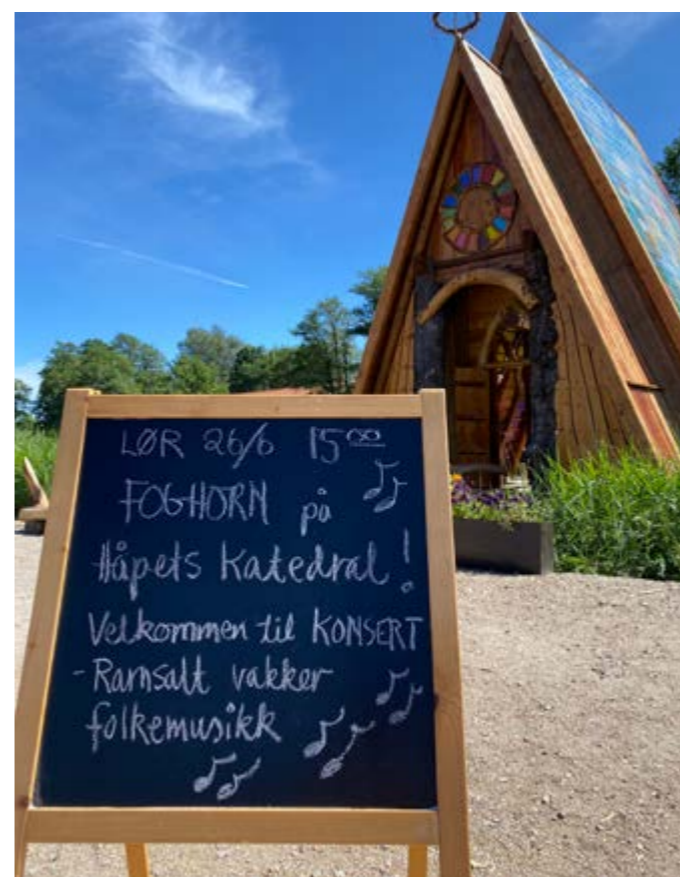 LØR 26/6 15⁰⁰
FOGHORN på
Håpets Katedral!
Velkommen til KONSERT
- Ramsalt vakker
folkemusikk